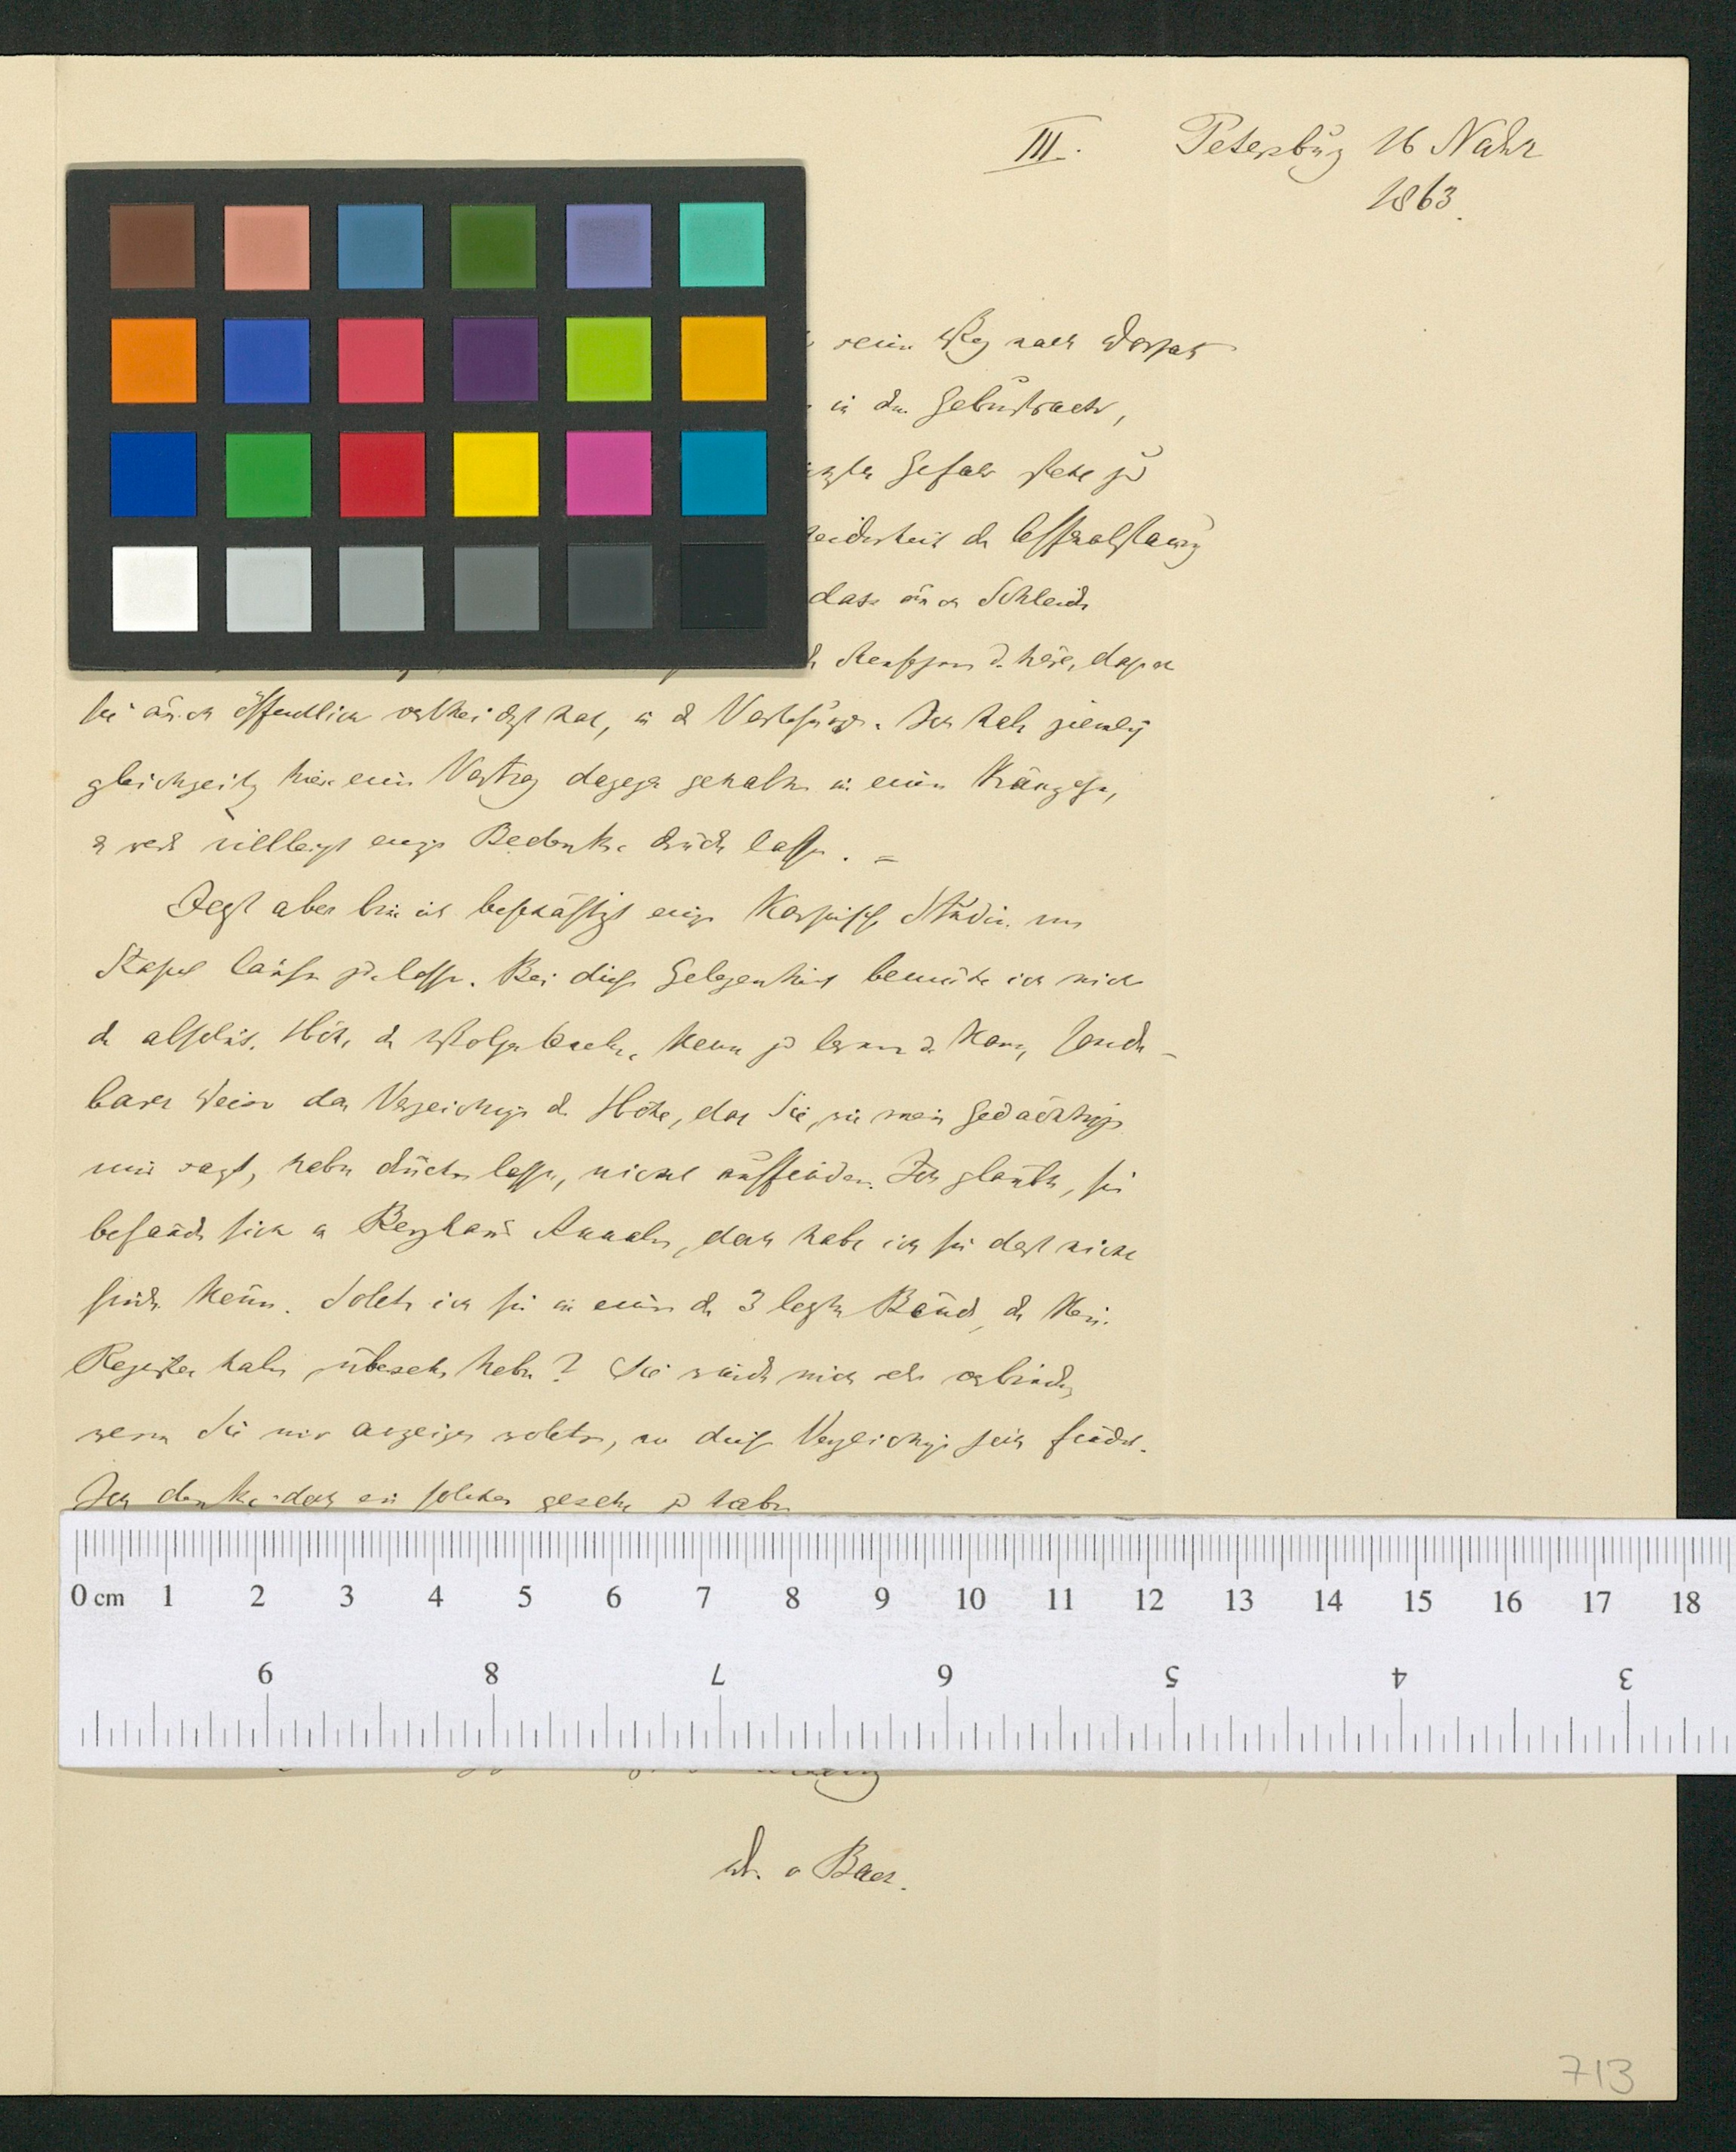 III. Petersburg 16 Nvbr
1863.
sein Weg nach Dorpat
in den
Gefahr stehe zu
der Affenabstammung
dass auch Schleiden
höre, dass er
sie auch öffentlich vertheidigt hat, in d Vorlesungen. Ich habe ziemlich
gleichzeitig hier einen Vortrag dagegen gehalten in einem Kränzchen,
u werde vielleicht einige Bedenken drucken lassen. =
Jetzt aber bin ich beschäftigt einige Kaspische Studien vom
Stapel laufen zu lassen. Bei dieser Gelegenheit bemühe ich mich
die absolute Höhe der Wolgaquelle kennen zu lernen u. kann sonder-
barer Weise das Verzeichniss der Höhen, das Sie, wie mein Gedächtniss
mir sagt, haben drucken lassen, nicht auffinden. Ich glaubte, sie
befände sich in Berghaus Annalen, doch habe ich sie dort nicht
finden können. Sollte ich sie in einem der 3 letzten Bände, die kein
Register haben übersehen haben? Sie würden mich sehr verbinden,
wenn Sie mir anzeigen wollten, wo dies Verzeichniss sich findet.
Ich denke doch ein solches gesehen zu haben
Dr. v Baer.
0 cm 1 2 3 4 5 6 7 8 9 10 11 12 13 14 15 16 17 18
9 8 7 6 5 4 3
713